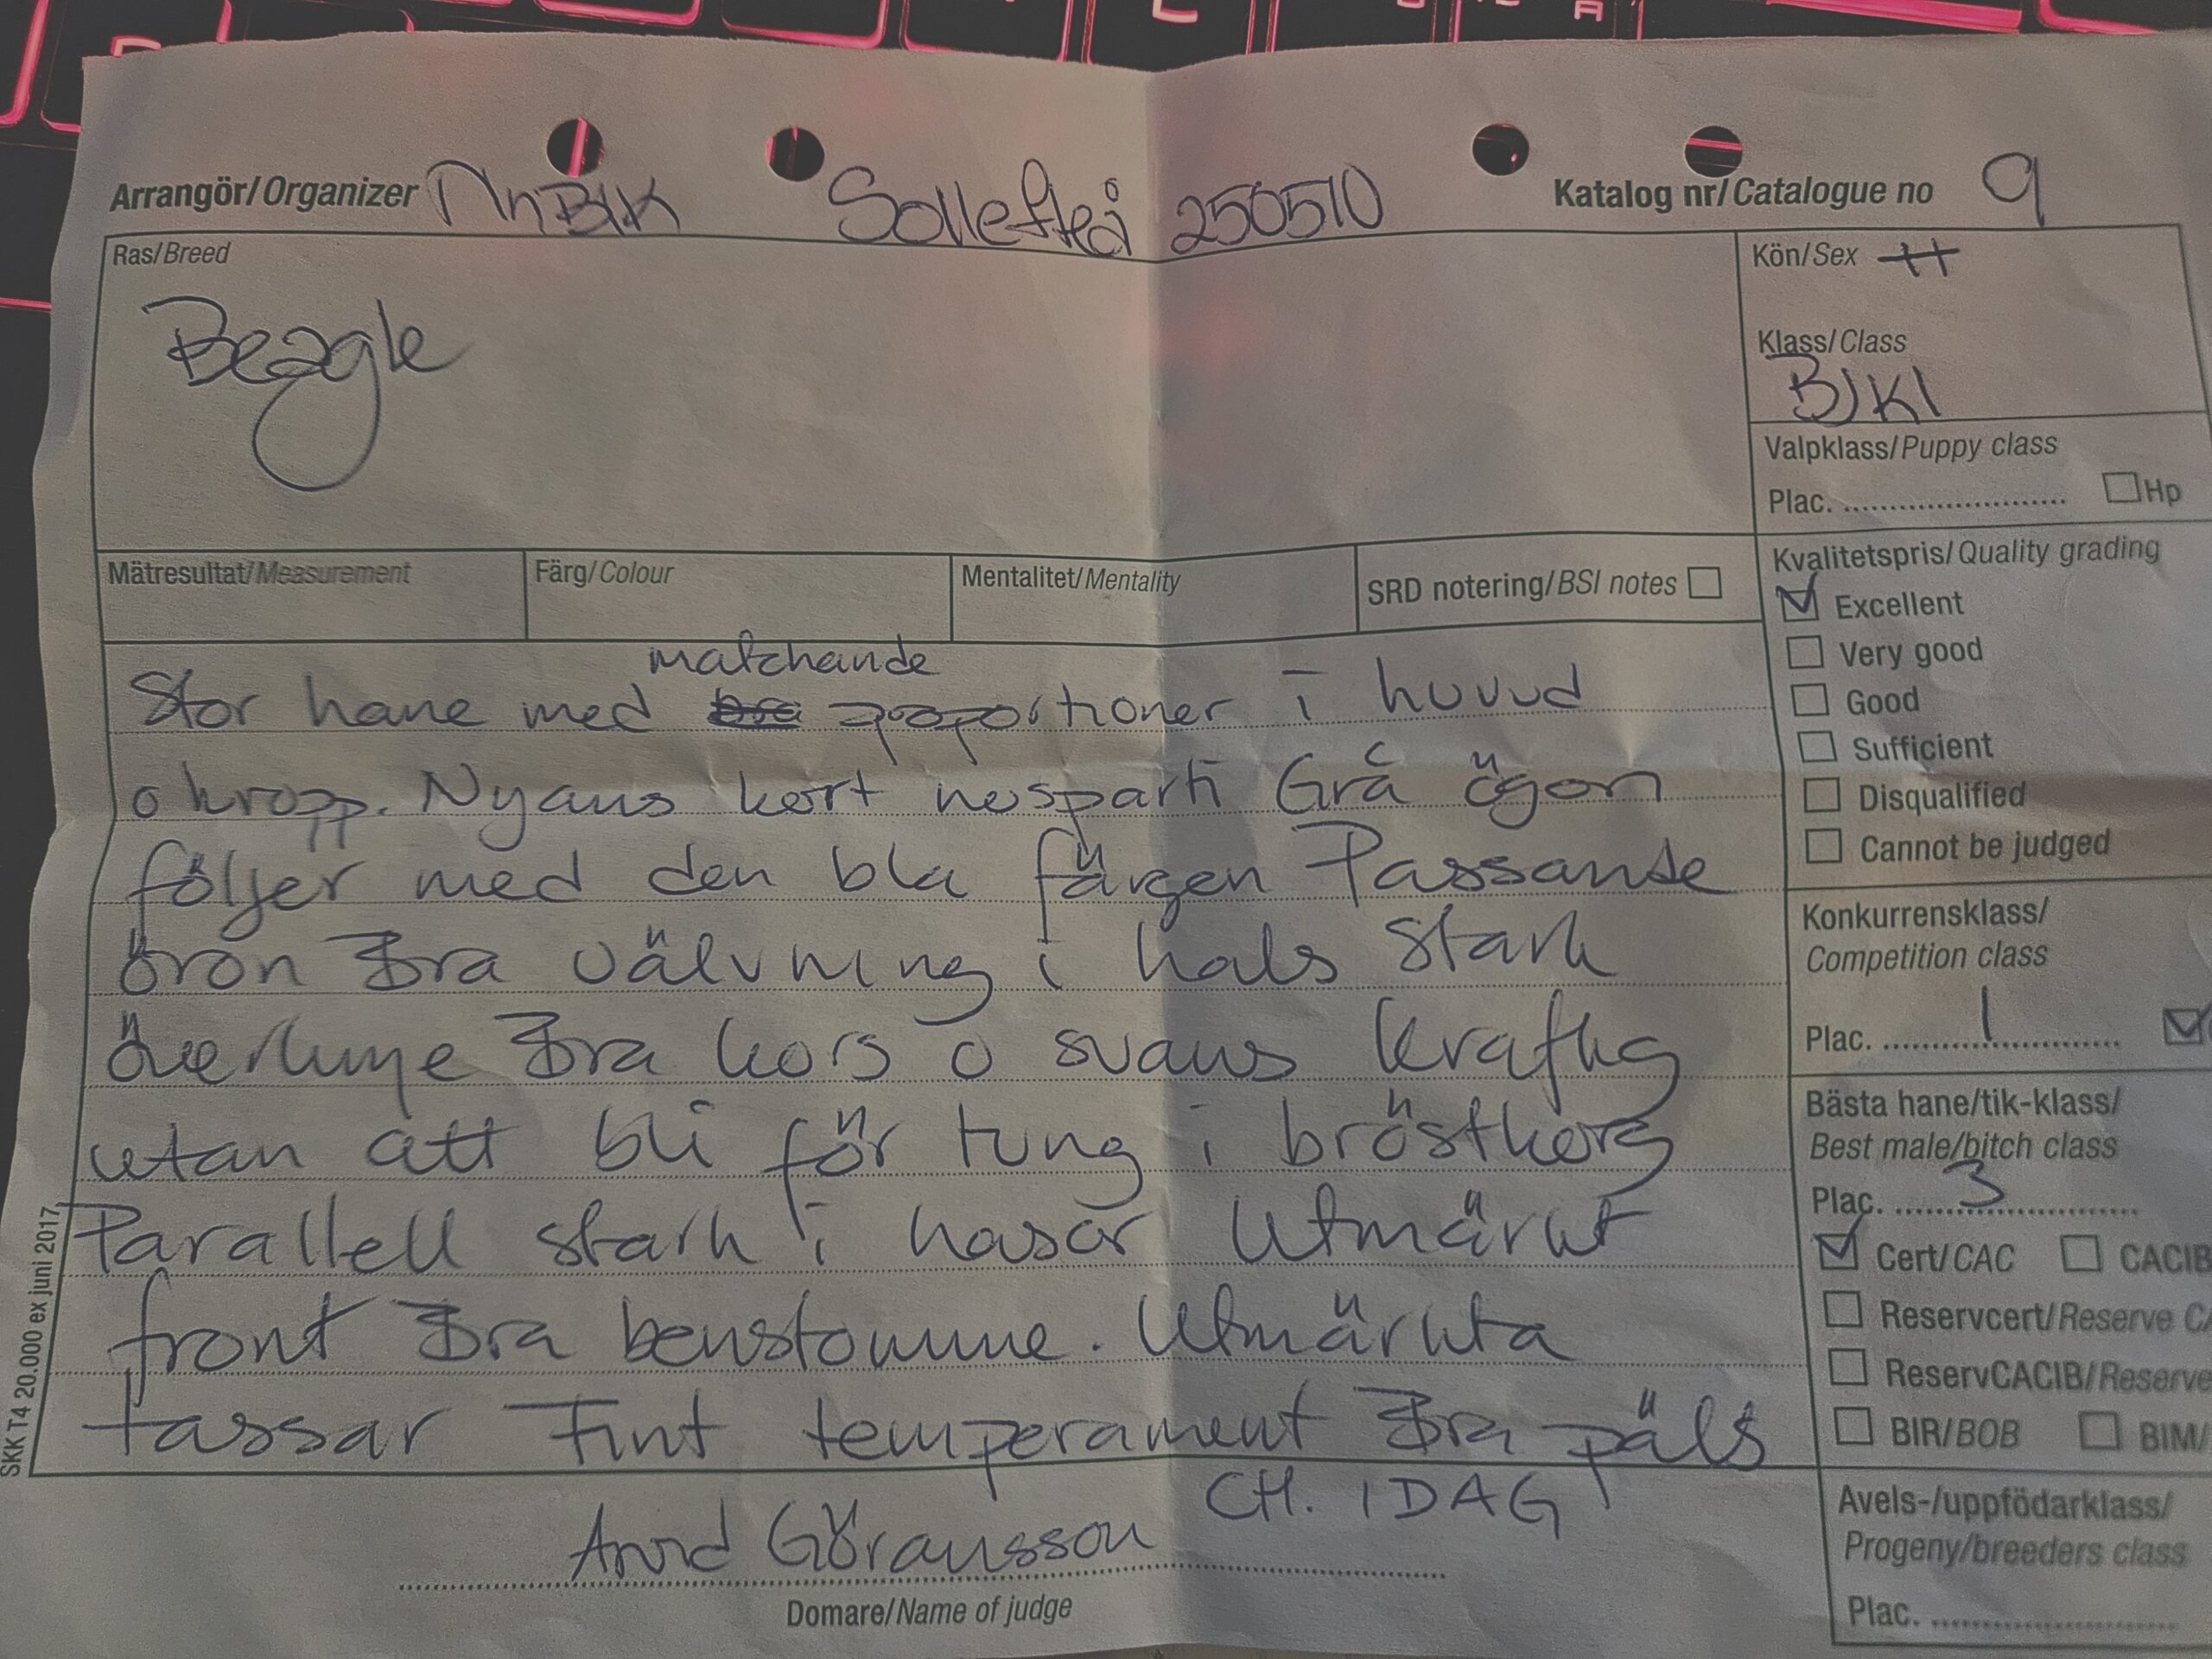 Arrangör/Organizer MnBlK Sollefteå 250510 Katalog nr/Catalogue no 9
Ras/Breed
Beagle
Kön/Sex H
Klass/Class
BJKl
Valpklass/Puppy class
Plac. Hp
Mätresultat/Measurement Färg/Colour Mentalitet/Mentality SRD notering/BSI notes
Kvalitetspris/Quality grading
Excellent
Very good
Good
Sufficient
Disqualified
Cannot be judged
matchande
Stor hane med bra propportioner i huvud
o kropp. Nyans kort nosparti Grå ögon
följer med den bla färgen Passande
öron Bra välvning i hals Stark
överlinje Bra kors o svans kraftig
utan att bli för tung i bröstkorg
Parallell stark i hasor Utmärkt
front Bra benstomme. Utmärkta
tassar Fint temperament Bra päls
CH. IDAG
Konkurrensklass/
Competition class
Plac. 1
Bästa hane/tik-klass/
Best male/bitch class
Plac. 3
Cert/CAC CACIB
Reservcert/Reserve CA
ReservCACIB/Reserve
BIR/BOB BIM/
Avels-/uppfödarklass/
Progeny/breeders class
Plac.
Arvid Göransson
Domare/Name of judge
SKK T4 20.000 ex juni 2017